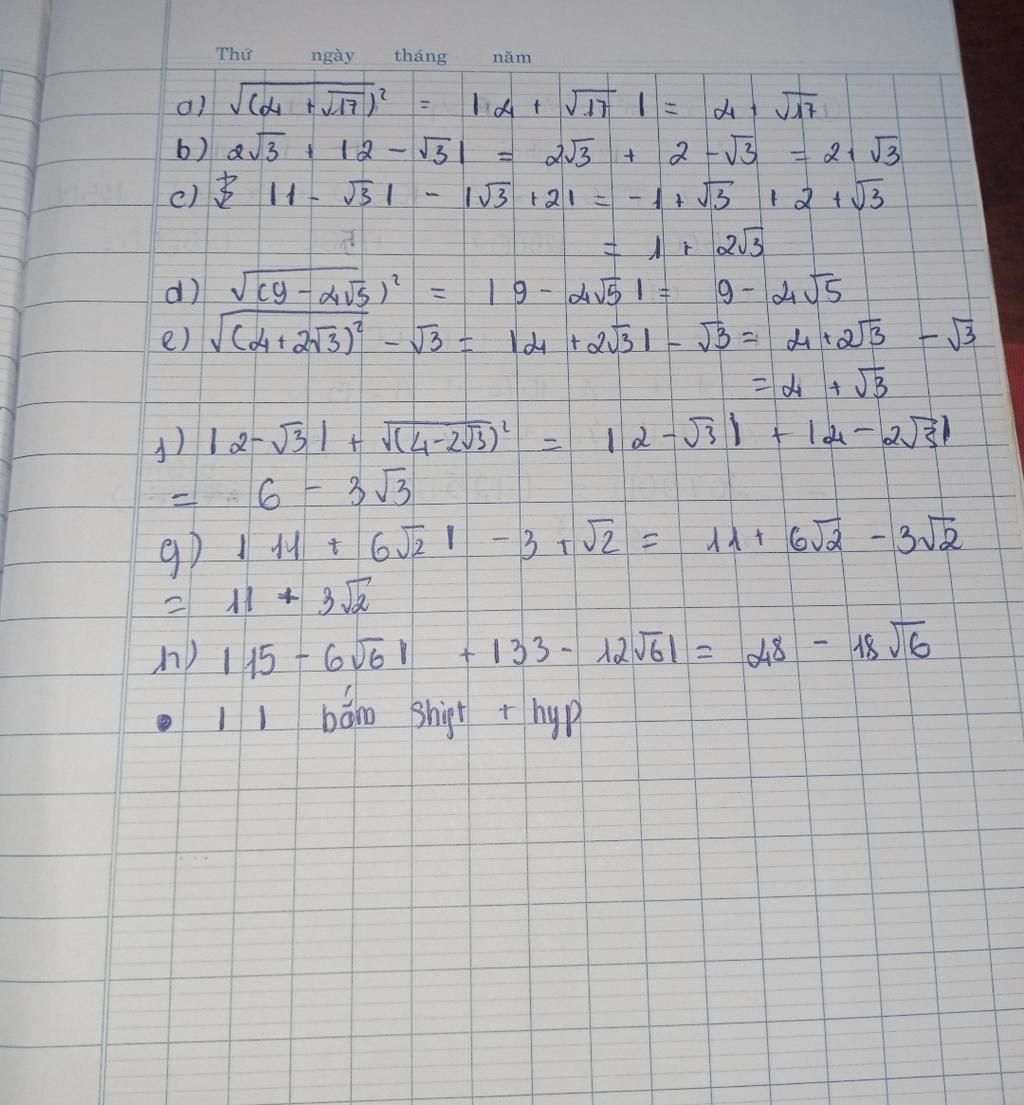 Thứ ngày tháng năm
a) √(4 + √17)² = |4 + √17| = 4 + √17
b) 2√3 + |2 - √3| = 2√3 + 2 - √3 = 2 + √3
c) |1 - √3| - |√3 + 2| = -1 + √3 + 2 + √3
= 1 + 2√3
d) √(9 - 4√5)² = |9 - 4√5| = 9 - 4√5
e) √(4 + 2√3)² - √3 = |4 + 2√3| - √3 = 4 + 2√3 - √3
= 4 + √3
f) |2 - √3| + √(4 - 2√3)² = |2 - √3| + |4 - 2√3|
= 6 - 3√3
g) |11 + 6√2| - 3 + √2 = 11 + 6√2 - 3√2
= 11 + 3√2
h) |15 - 6√6| + |33 - 12√6| = 48 - 18√6
• | | bấm Shift + hyp